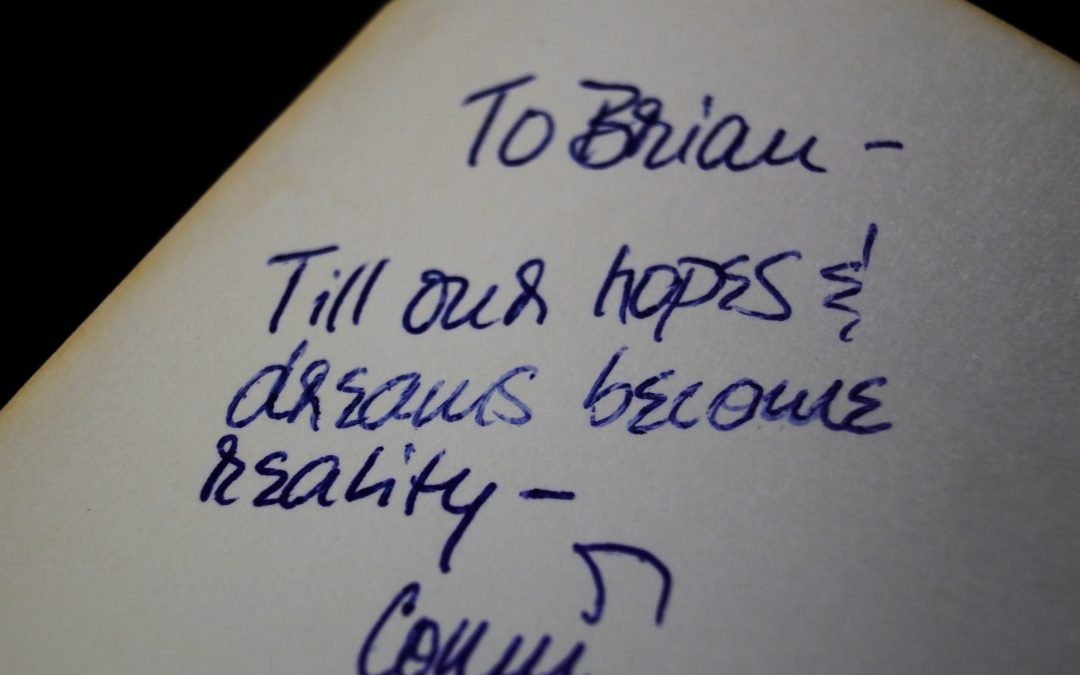 To Brian -
Till our hopes &
dreams become
reality -